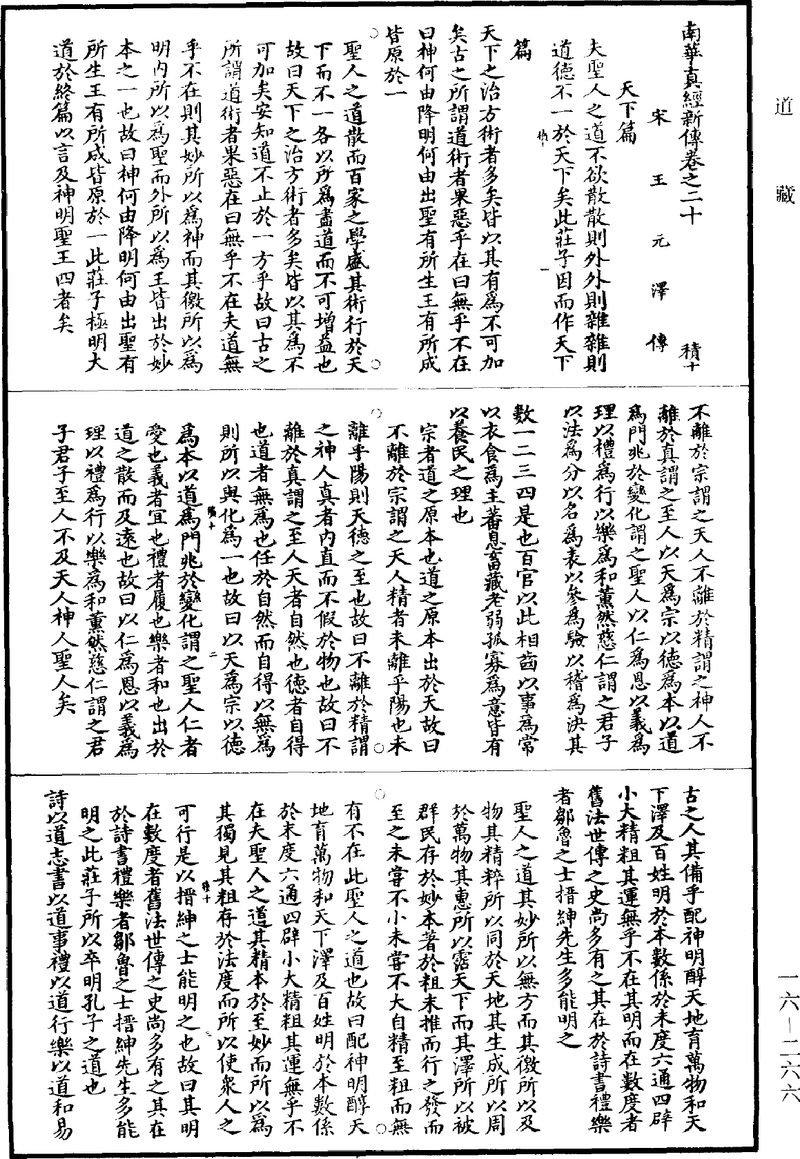 道藏
南華真經新傳卷之二十
積十
宋王元澤傳
天下篇
夫聖人之道不欲散散則外外則雜雜則
道德不一於天下矣此莊子因而作天下
篇
天下之治方術者多矣皆以其有為不可加
矣古之所謂道術者果惡乎在曰無乎不在
曰神何由降明何由出聖有所生王有所成
皆原於一
聖人之道散而百家之學盛其術行於天
下而不一各以所為盡道而不可增益也
故曰天下之治方術者多矣皆以其為不
可加矣安知道不止於一方乎故曰古之
所謂道術者果惡在曰無乎不在夫道無
乎不在則其妙所以為神而其徼所以為
明內所以為聖而外所以為王皆出於妙
本之一也故曰神何由降明何由出聖有
所生王有所成皆原於一此莊子極明大
道於終篇以言及神明聖王四者矣
不離於宗謂之天人不離於精謂之神人不
離於真謂之至人以天為宗以德為本以道
為門兆於變化謂之聖人以仁為恩以義為
理以禮為行以樂為和薰然慈仁謂之君子
以法為分以名為表以參為驗以稽為決其
數一二三四是也百官以此相齒以事為常
以衣食為主蕃息畜藏老弱孤寡為意皆有
以養民之理也
宗者道之原本也道之原本出於天故曰
不離於宗謂之天人精者未離乎陽也未
離乎陽則天德之至也故曰不離於精謂
之神人真者內直而不假於物也故曰不
離於真謂之至人天者自然也德者自得
也道者無為也任於自然而自得以無為
則所以與化為一也故曰以天為宗以德
為本以道為門兆於變化謂之聖人仁者
愛也義者宜也禮者履也樂者和也出於
道之散而及遠也故曰以仁為恩以義為
理以禮為行以樂為和薰然慈仁謂之君
子君子至人不及天人神人聖人矣
古之人其備乎配神明醇天地育萬物和天
下澤及百姓明於本數係於末度六通四辟
小大精粗其運無乎不在其明而在數度者
舊法世傳之史尚多有之其在於詩書禮樂
者鄒魯之士搢紳先生多能明之
聖人之道其妙所以無方而其徼所以及
物其精粹所以同於天地其生成所以周
於萬物其惠所以霑天下而其澤所以被
群民存於妙本著於粗末推而行之發而
至之未嘗不小未嘗不大自精至粗而無
有不在此聖人之道也故曰配神明醇天
地育萬物和天下澤及百姓明於本數係
於末度六通四辟小大精粗其運無乎不
在夫聖人之道其精本於至妙而所以為
其獨見其粗存於法度而所以使衆人之
可行是以搢紳之士能明之也故曰其明
在數度者舊法世傳之史尚多有之其在
於詩書禮樂者鄒魯之士搢紳先生多能
明之此莊子所以卒明孔子之道也
詩以道志書以道事禮以道行樂以道和易
一六—二六六